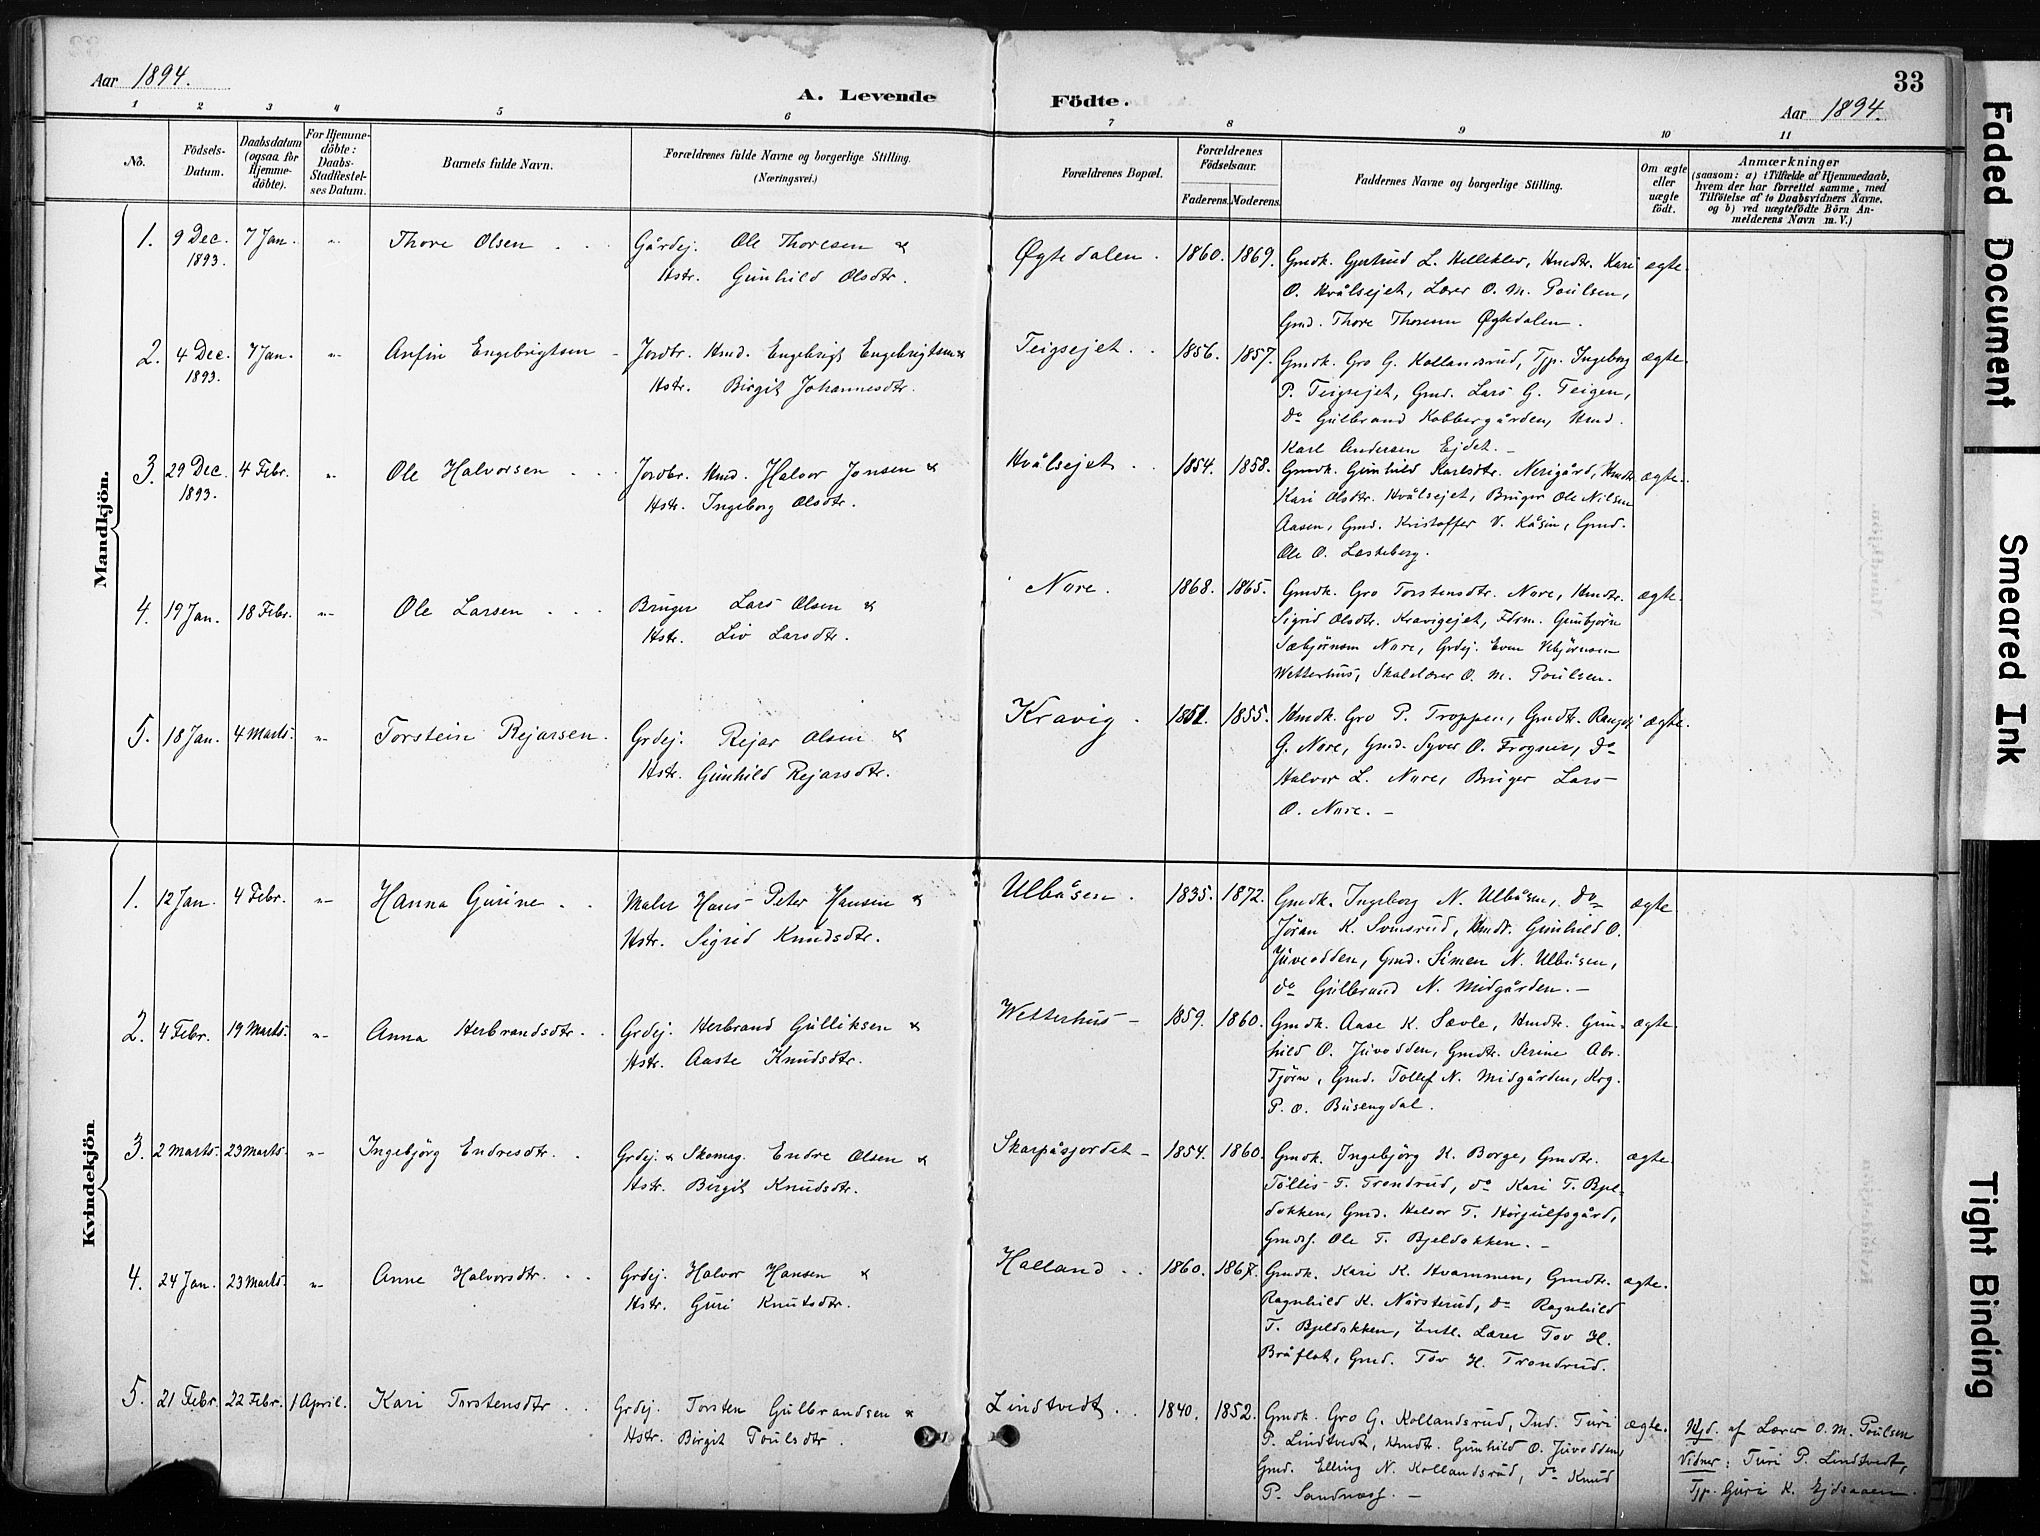 33
Aar 1894.
A. Levende Födte.
Aar 1894.
1 2 3 4 5 6 7 8 9 10 11
No.
Födsels-
Datum.
Daabsdatum
(ogsaa for
Hjemme-
döbte).
For Hjemme-
döbte:
Daabs-
Stadfæstel-
ses Datum.
Barnets fulde Navn.
Forældrenes fulde Navne og borgerlige Stilling.
(Næringsvei.)
Forældrenes Bopæl.
Forældrenes
Födselsaar.
Faderens. Moderens.
Faddernes Navne og borgerlige Stilling.
Om ægte
eller
uægte
födt.
Anmærkninger
(saasom: a) i Tilfælde af Hjemmedaab,
hvem der har forrettet samme, med
Tilföielse af to Daabsvidners Navne.
og b) ved uægtefödte Börn An-
melderens Navn m. V.)
Mandkjön.
1. 9 Dec. 7 Jan. -"- Thore Olsen Gårdej. Ole Thoresen & Øgtedalen. 1860. 1869. Gmdk. Gjertrud L. Helleklev, Hmdtr. Kari ægte.
1893. Hstr. Gunhild Olsdtr. O. Hvålsejet, Lærer O. M. Poulsen,
Gmd. Thore Thoresen Øgtedalen.
2. 4 Dec. 7 Jan. -"- Anfin Engebrigtsen Jordbr. Hmd. Engebrigt Engebrigtsen & Teigsejet. 1856. 1857. Gmdk. Gro G. Kollandsrud, Tjp. Ingeborg ægte.
1893. Hstr. Birgit Johannesdtr. P. Teigsejet, Gmd. Lars G. Teigen,
do Gulbrand Kobbergården, Hmd.
Karl Andersen Ejdet. -
3. 29 Dec. 4 Febr. -"- Ole Halvorsen Jordbr. Hmd. Halvor Jonsen & Hvålsejet. 1854. 1858. Gmdk. Gunhild Karlsdtr. Nerigård, Hmdtr. ægte.
1893. Hstr. Ingeborg Olsdtr. Kari Olsdtr. Hvålsejet, Bruger Ole Nilsen
Aasen, Gmd. Kristoffer V. Kåsin, Gmd.
Ole O. Lesteberg.
4. 19 Jan. 18 Febr. -"- Ole Larsen Bruger Lars Olsen & Nore. 1868. 1865. Gmdk. Gro Torstensdtr. Nore, Hmdtr. ægte.
Hstr. Liv Larsdtr. Sigrid Olsdtr. Kravigejet, Fdrm. Gunbjørn
Sæbjørnsen Nore, Grdej. Even Vebjørnsen
Wetterhus, Skolelærer O. M. Poulsen.
5. 18 Jan. 4 Marts. -"- Torstein Rejarsen. Grdej. Rejar Olsen & Kravig. 1851. 1855. Hmdk. Gro P. Troppen, Gmdtr. Rangdi ægte.
Hstr. Gunhild Rejarsdtr. G. Nore, Gmd. Syver O. Frogner, do
Halvor L. Nore, Bruger Lars
O. Nore. -
Kvindekjön
1. 12 Jan. 4 Febr. -"- Hanna Gurine Maler Hans Peter Hansen & Ulbåsen. 1835. 1872. Gmdk. Ingeborg N. Ulbåsen, do ægte
Hstr. Sigrid Knudsdtr. Jöran K. Somsrud, Hmdt. Gunhild O.
Juveodden, Gmd. Simen N. Ulbåsen,
do Gulbrand N. Midgården. -
2. 4 Febr. 19 Marts. -"- Anna Herbrandsdtr. Grdej. Herbrand Gulliksen & Wetterhus - 1859. 1860. Gmdk. Aase K. Sævle, Hmdtr. Gun- ægte.
Hstr. Aaste Knudsdtr. hild O. Juvodden, Gmdtr. Serine Abr.
Tjörn, Gmd. Tollef N. Midgården, Krg.
P. O. Busengdal.
3. 2 Marts. 23 Marts. -"- Ingebjörg Endresdtr. Grdej. & Skomag. Endre Olsen & Skarpåsjordet - 1854. 1860. Gmdk. Ingebjörg H. Borge, Gmdtr. ægte.
Hstr. Birgit Knudsdtr. Töllis T. Trondrud, do Kari T. Bjel-
dokken, Gmd. Halvor T. Hörgulfsgård,
Gmds. Ole T. Bjeldokken. -
4. 24 Jan. 23 Marts. -"- Anne Halvorsdtr. Grdej. Halvor Hansen & Halland 1860. 1867. Gmdk. Kari K. Hvammen, Gmdtr. ægte.
Hstr. Guri Knutsdtr. Ragnhild K. Nörsterud, do Ragnhild
T. Bjeldokken, Entl. Lærer Tov H.
Bråflot, Gmd. Tov H. Trondrud.
5. 21 Febr. 22 Febr. 1 April. Kari Torstensdtr Grdej. Torsten Gulbrandsen & Lindtvedt 1840. 1852. Gmdk. Gro G. Kollandsrud, Ind. Turi ægte. Hjd. af Lærer O. M. Poulsen
Hstr. Birgit Poulsdtr. P. Lindtvedt, Hmdtr. Gunhild O. Juvodden, Vidner: Turi P. Lindtvedt,
Gmd. Elling N. Kollandsrud, do Knud Tjp. Guri K. Ejdsaaen.
P. Sandnæs. -
Faded Document
Smeared Ink
Tight Binding